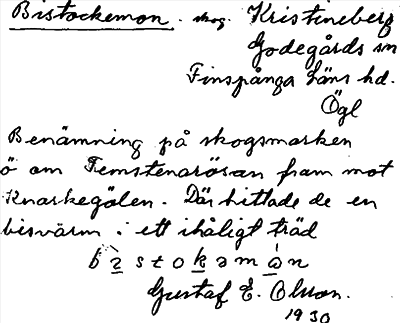 Bistockemon. skog. Kristineberg
Godegårds sn
Finspånga läns hd.
Ögl
Benämning på skogsmarken
ö om Femstenarösan fram mot
Knarkegölen. Där hittade de en
bisvärm i ett ihåligt träd
Gustaf E. Olsson.
1930